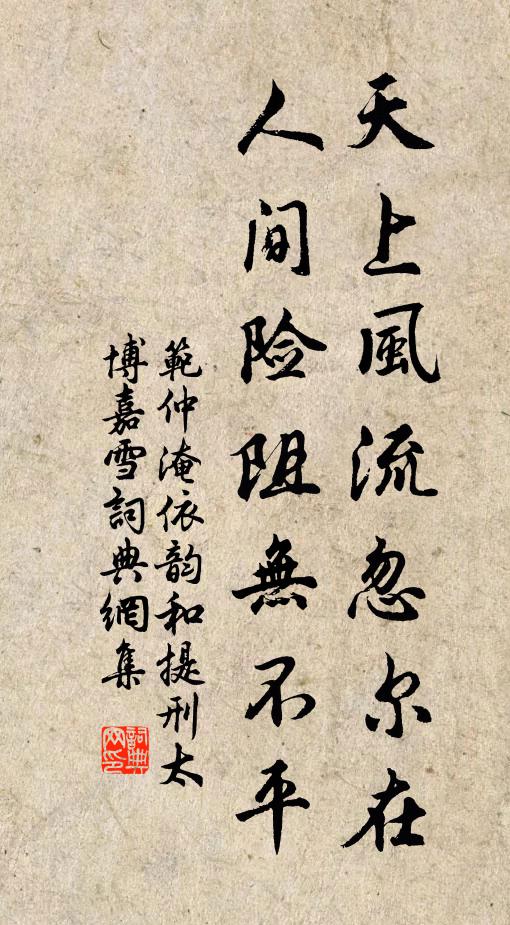 天上風流忽尔在
人间险阻無不平
範仲淹依韵和提刑太
博嘉雪詞典網集
詞典網印